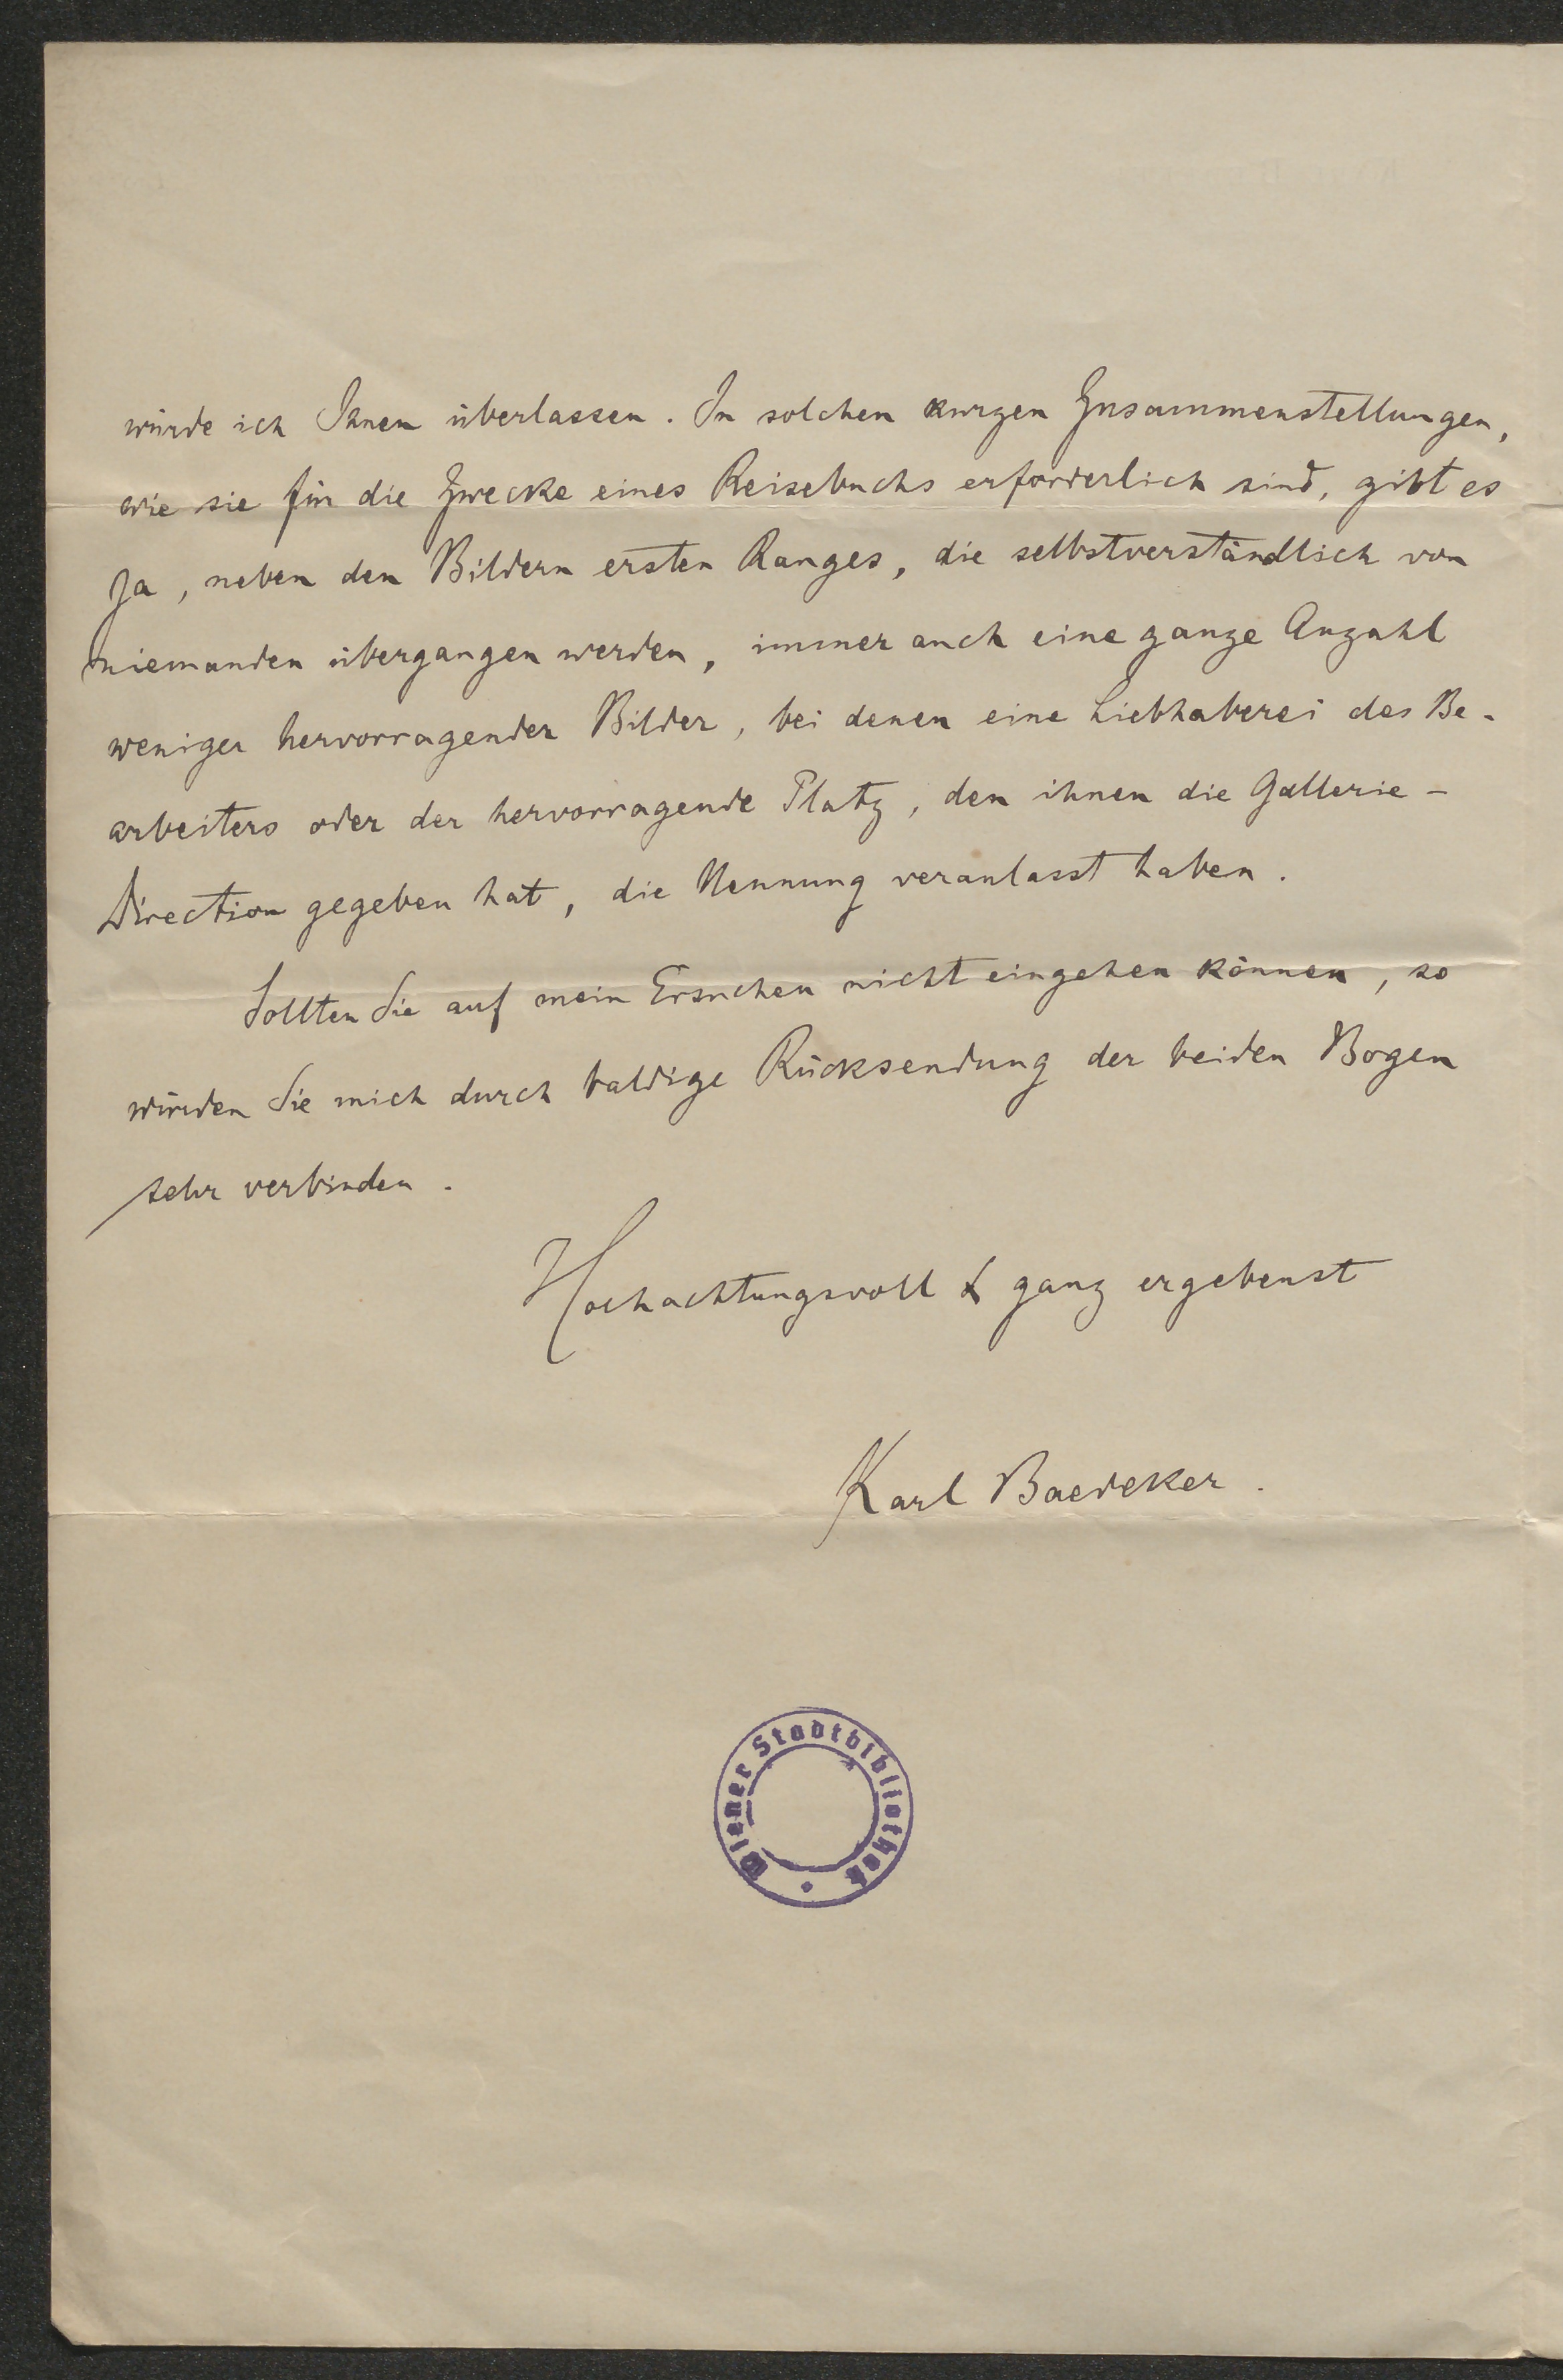 würde ich Ihnen überlassen. In solchen kurzen Zusammenstellungen,
wie sie für die Zwecke eines Reisebuchs erforderlich sind, gibt es
ja, neben den Bildern ersten Ranges, die selbstverständlich von
niemanden übergangen werden, immer auch eine ganze Anzahl
weniger hervorragender Bilder, bei denen eine Liebhaberei des Be-
arbeiters oder der hervorragende Platz, den ihnen die Gallerie-
Direction gegeben hat, die Nennung veranlasst haben.
Sollten Sie auf mein Ersuchen nicht eingehen können, so
würden Sie mich durch baldige Rücksendung der beiden Bogen
sehr verbinden.
Hochachtungsvoll & ganz ergebenst
Karl Baedeker.
Wiener Stadtbibliothek